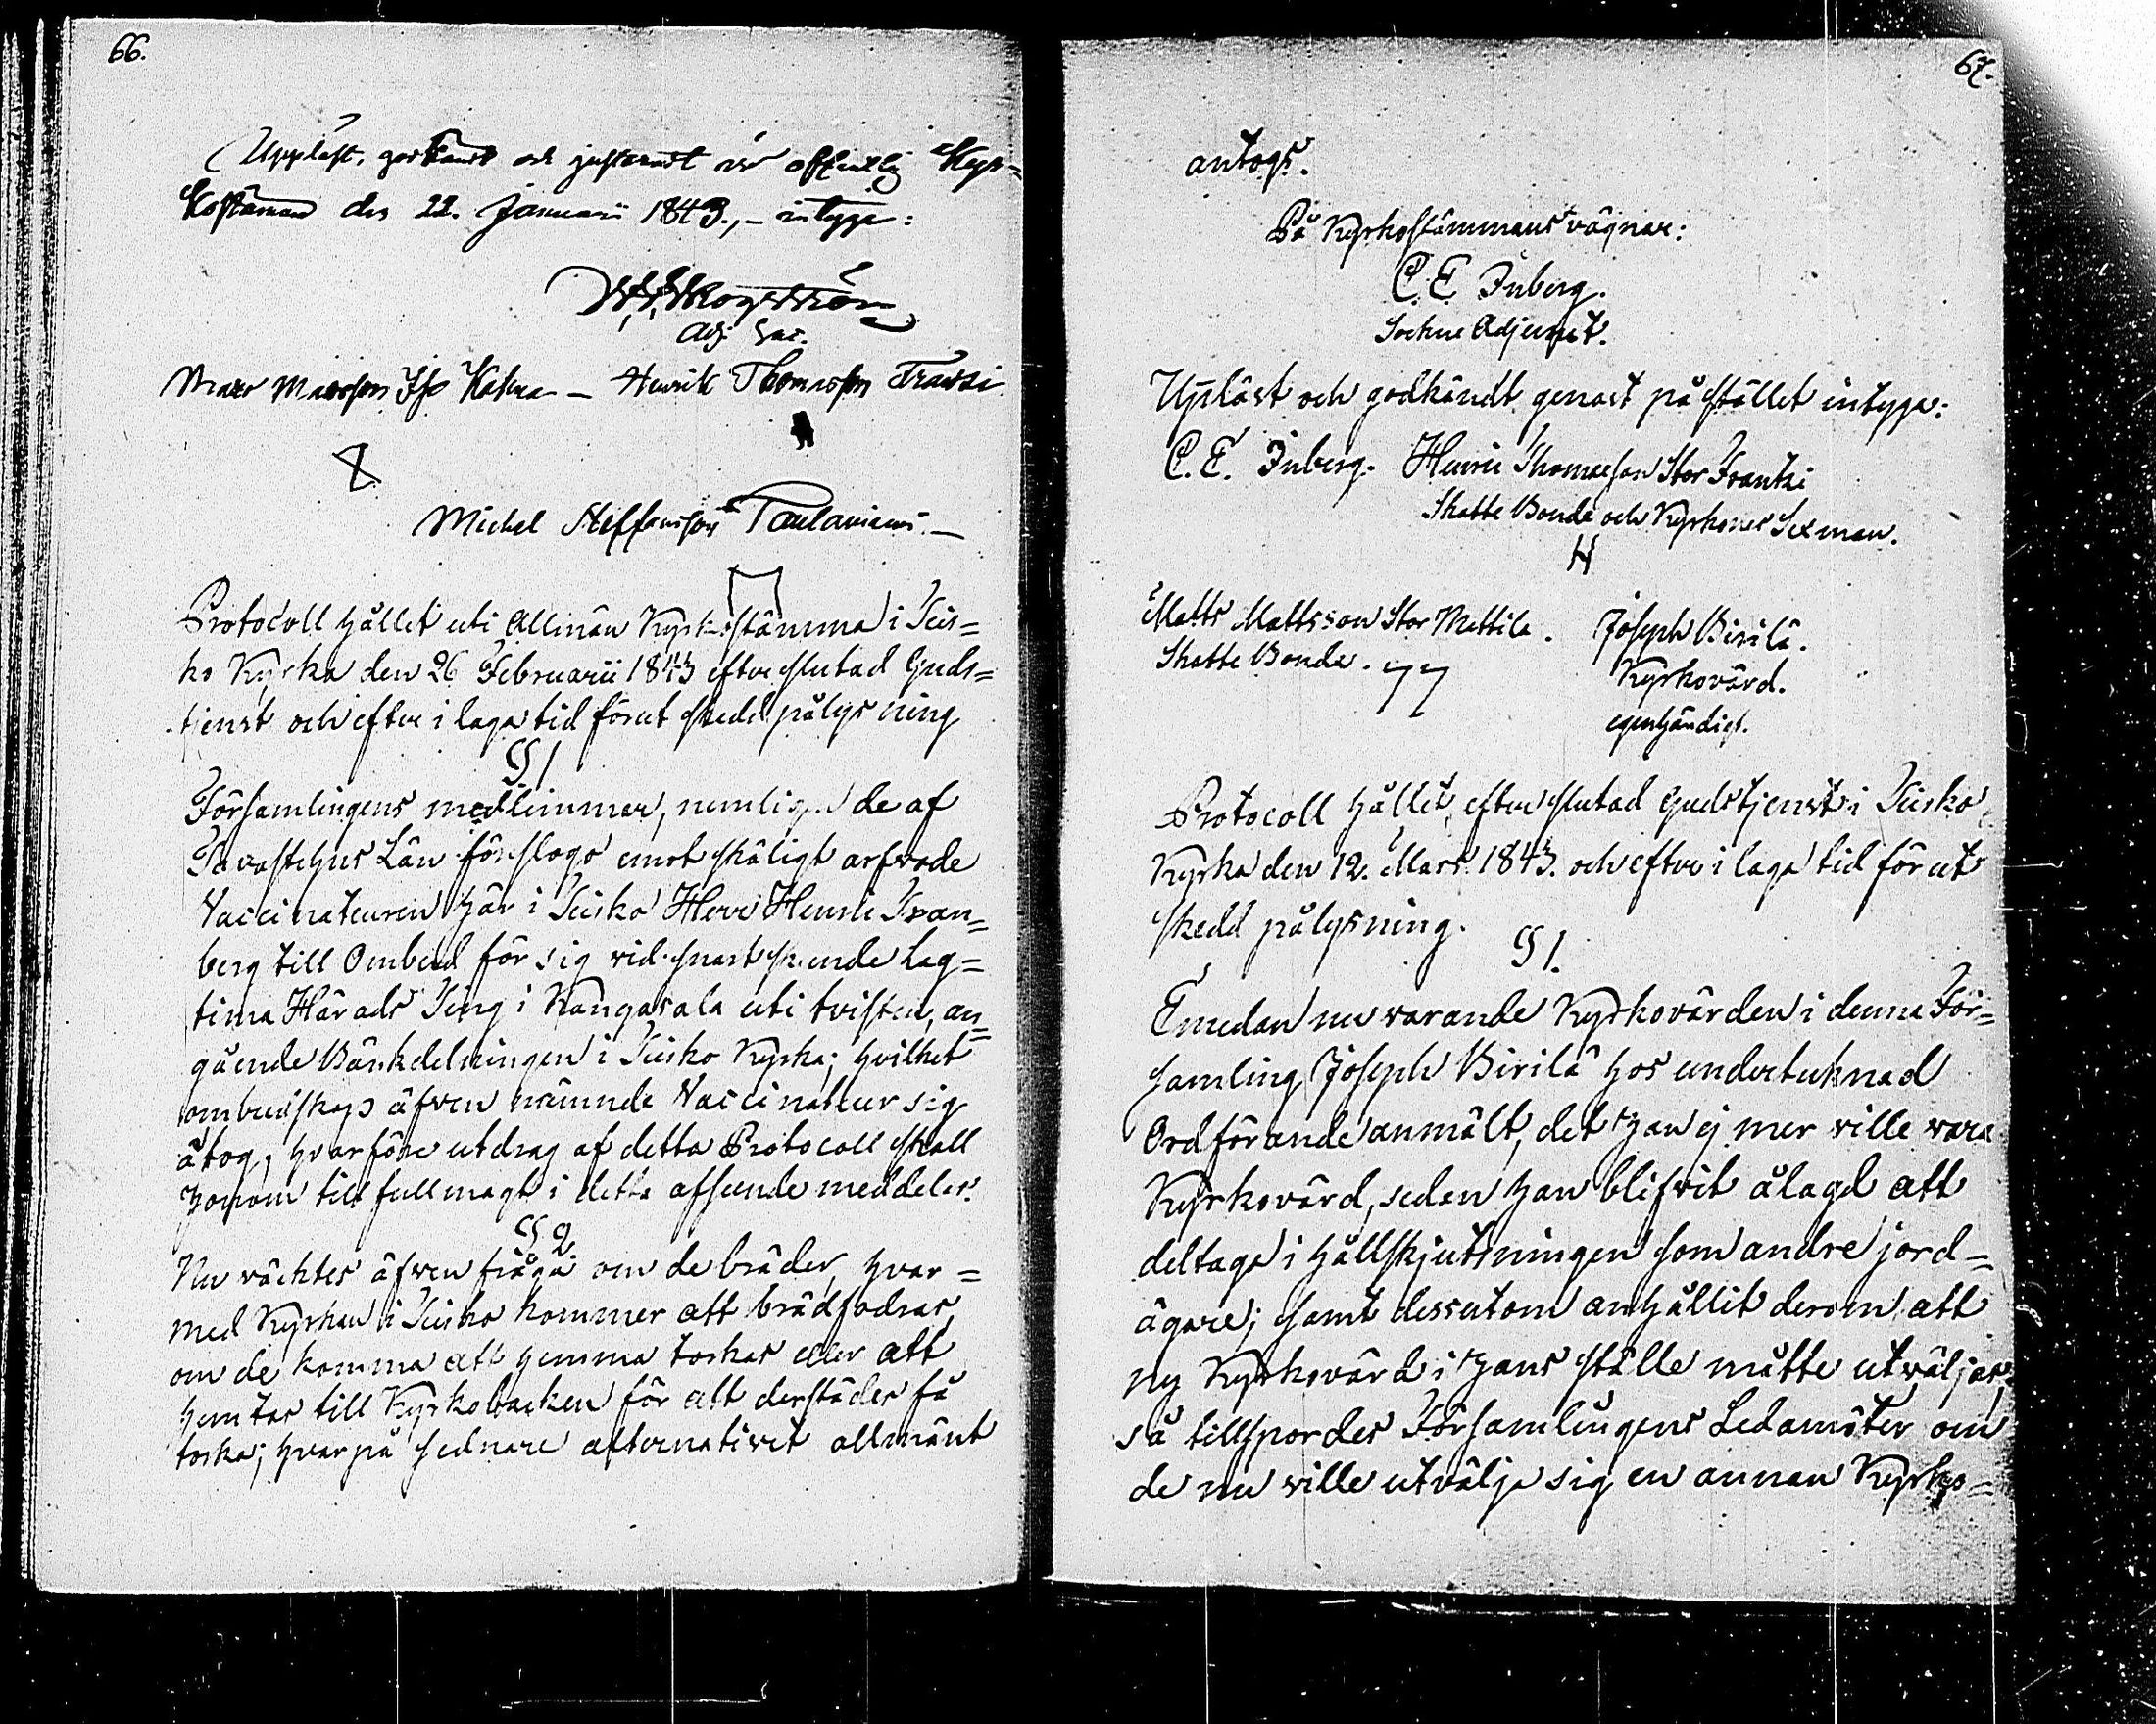 66.
Uppläst, godkändt och justeradt vid offentlig Kyr=
kostämma den 22. Januarii 1843., – intyga:
Adj. Sac.
Matts Mattsson Kakna – Henrik Thomasson Frantsi
Michel Steffansson Taulaniemi. –
Protocoll hållet uti Allmän Kyrkostämma i Teis=
ko Kyrka den 26 Februarii 1843 efter slutad Guds=
tjenst och efter i laga tid förut skedd pålysning
§ 1
Församlingens medlemmar, nemligen de af
Tavastehus Län föreslogo emot skäligt arfvode
Vaccinateuren här i Teisko Herr Henric Gran=
berg till Ombud för sig vid snart skeende Lag=
tima Härads Ting i Kangasala uti tvisten, an=
gående Bänkdelningen i Teisko Kyrka; hvilket
ombudskap äfven nämnde Vaccinateur sig
åtog, hvarföre utdrag af detta Protocoll skall
honom till fullmagt i detta afseende meddelas.
§ 2.
Nu väcktes äfven fråga om de bräder, hvar=
med Kyrkan i Teisko kommer att brädfodras,
om de komma att hemma torkas eller att
hemtas till Kyrkobacken för att derstädes få
torka; hvarpå sednare alternativet allmänt
67.
antogs.
På Kyrkostämmans vägnar:
C. E. Inberg.
Sockne Adjunct.
Upläst och godkändt genast på stället intyga:
C. E. Inberg. Henric Thomasson Stor Frantsi
Skatte Bonde och Kyrkones Sexman.
Matts Mattsson Stor Mattila. Joseph Birilä.
Skatte Bonde. Kyrkovärd.
egenhändigt.
Protocoll hållet, efter slutad Gudstjenst i Teisko
Kyrka den 12. Mars 1843. och efter i laga tid förut
skedd pålysning.
§ 1.
Emedan nu varande Kyrkovärden i denna För=
samling Joseph Birilä hos undertecknad
Ordförande anmält, det han ej mer ville vara
Kyrkovärd, sedan han blifvit ålagd att
deltaga i hållskjutsningen som andre jord=
ägare; samt dessutom anhållit derom att
ny Kyrkovärd i hans ställe måtte utväljas,
så tillspordes Församlingens Ledamöter om
de nu ville utvälja sig en annan Kyrko=